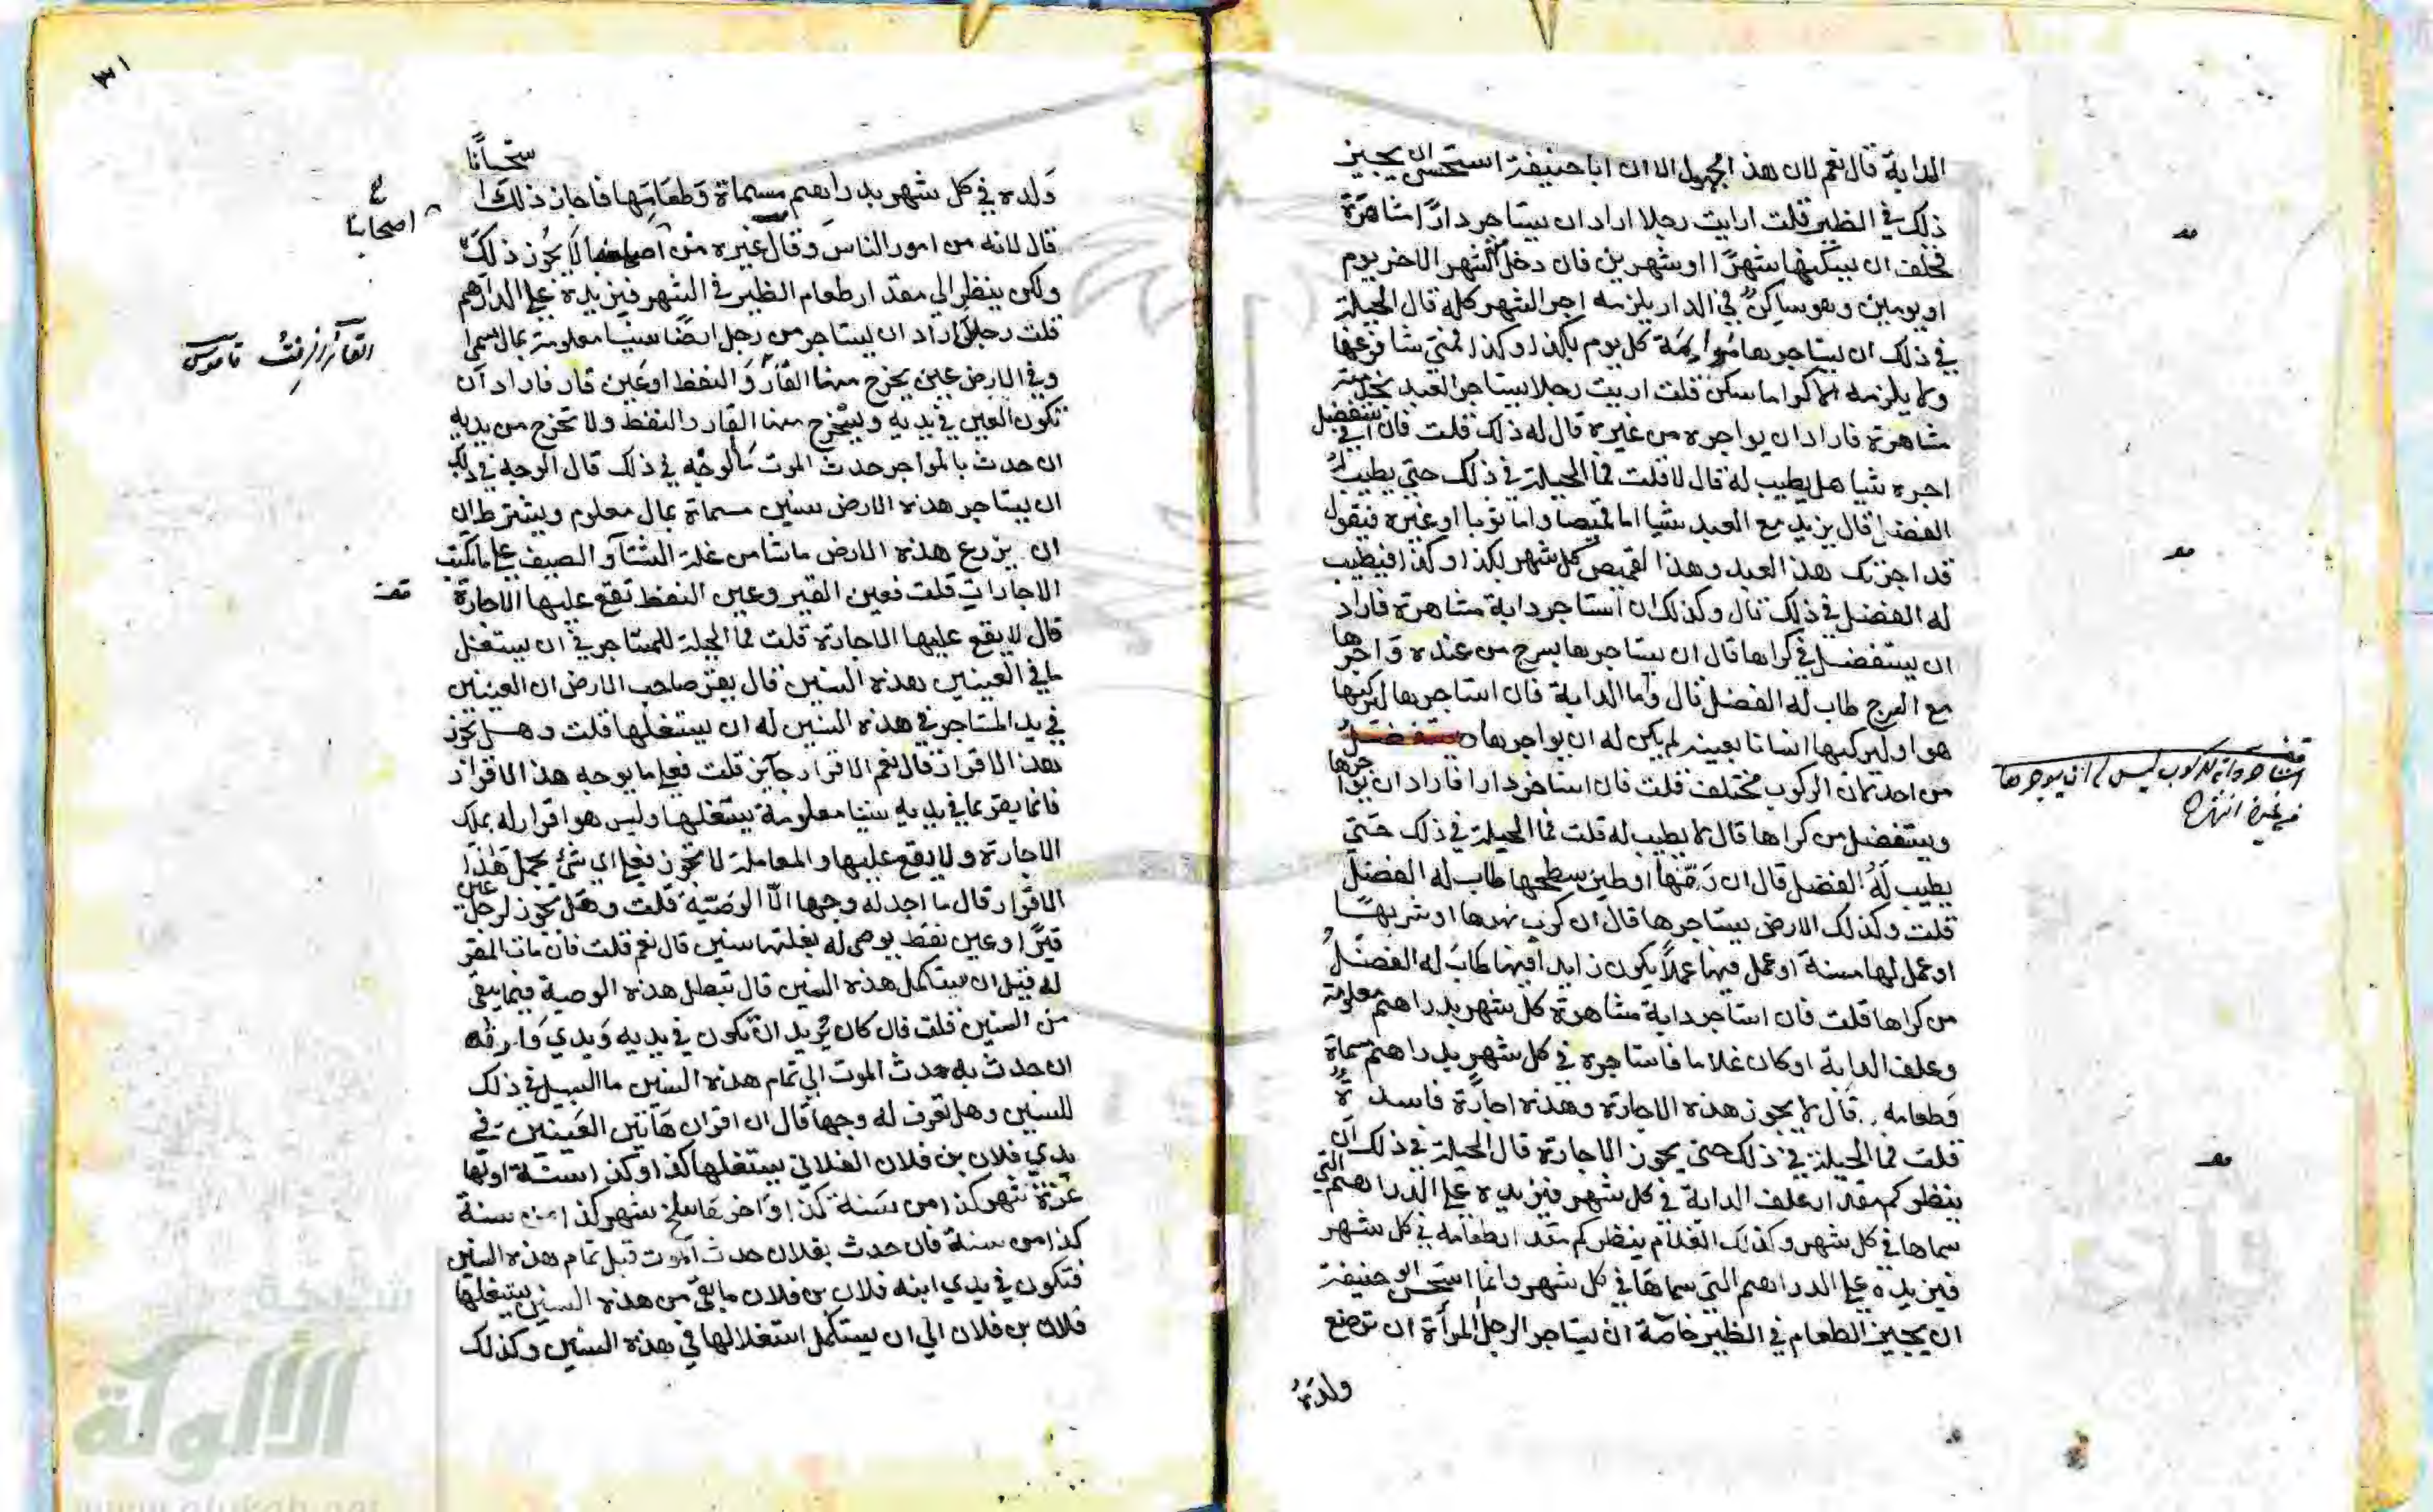 الدابة قال نعم لان هذا المجهول الا ان ابا حنيفة استحسن ان يجيز
ذلك في الظير قلت ارايت رجلا اراد ان يستاجر دارًا مشاهرة
فخلف ان يسكنها شهرًا او شهرين فان دخل الشهر الاخر يوم
او يومين وهو ساكنٌ في الدار يلزمه اجر الشهر كله قال الحيلة
في ذلك ان يستاجرها مياومة كل يوم بكذا وكذا فمتي شا فرغها
ولا يلزمه الا كرا ما سكن قلت اريت رجلا يستاجر العبد بخدمته
مشاهرة فاراد ان يواجره من غيره قال له ذلك قلت فان استفضل في
اجره شيا هل يطيب له قال لا قلت فما الحيلة في ذلك حتي يطيب له
الفضل قال يزيد مع العبد شيا اما قميصا واما ثوبا او غيره فيقول
قد اجرتك هذا العبد وهذا القميص كل شهر بكذا وكذا فيطيب
له الفضل في ذلك قال وكذلك ان استاجر دابة مشاهرة فاراد
ان يستفضل في كراها قال ان يستاجرها بسرج من عنده واجرها
مع السرج طاب له الفضل قال واما الدابة فان استاجرها ليركبها
هو او ليركبها انسانا بعينه لم يكن له ان يواجرها
من احد لان الركوب مختلف قلت فان استاجر دارا فاراد ان يواجرها
ويستفضل من كراها قال لا يطيب له قلت فما الحيلة في ذلك حتي
يطيب له الفضل قال ان رمّها او طين سطحها طاب له الفضل
قلت وكذلك الارض يستاجرها قال ان كري نهرها او شربها
او عمل لها مسناة او عمل فيها عملاً يكون زايدا فيها طاب له الفضل
من كراها قلت فان استاجر دابة مشاهرة كل شهر بدراهم معلومة
وعلف الدابة او كان غلاما فاستاجره في كل شهر بدراهم مسماة
وطعامه قال لا يجوز هذه الاجارة وهذه اجارة فاسدة
قلت فما الحيلة في ذلك حتي يجوز الاجارة قال الحيلة في ذلك ان
ينظر كم مقدار علف الدابة في كل شهر فيزيده علي الدراهم التي
سماها في كل شهر وكذلك الغلام ينظر كم مقدار طعامه في كل شهر
فيزيده علي الدراهم التي سماها في كل شهر وانما استحسن ابو حنيفة
ان يجيز الطعام في الظير خاصة ان يستاجر الرجل المرأة ان ترضع
ولده
استاجر دابة للركوب ليس له ان يوجرها
من غيره انتهي
٣١
ولده في كل شهر بدراهم مسماة وطعامها فاجاز ذلك استحسانا
قال لانه من امور الناس وقال غيره من اصحابنا لا يجوز ذلك
ولكن ينظر الي مقدار طعام الظير في الشهر فيزيده علي الدراهم
قلت رجل اراد ان يستاجر من رجل ارضا سنينا معلومة بمال مسمي
وفي الارض عين يخرج منها القار والنفط او عين قار فاراد ان
تكون العين في يديه ويستخرج منها القار والنفط ولا تخرج من يديه
ان حدث بالمواجر حدث الموت ما الوجه في ذلك قال الوجه في ذلك
ان يستاجر هذه الارض سنين مسماة بمال معلوم ويشترط ان
ان يزرع هذه الارض ما شا من غلة الشتا والصيف علي ما يكتب
الاجارات قلت فعين القير وعين النفط تقع عليها الاجارة
قال لا يقع عليها الاجارة قلت فما الحيلة للمستاجر في ان يستغل
ما في العينين بهذه السنين قال يقر صاحب الارض ان العينين
في يد المستاجر في هذه السنين له ان يستغلها قلت وهل يجوز
بهذا الاقرار قال نعم الاقرار جايز قلت فعلي ما يوجه هذا الاقرار
فانما يقر بما في يديه سنينا معلومة يستغلها وليس هو اقرار له بملك
الاجارة ولا يقع عليها والمعاملة لا تجوز فعلي اي شي يحمل هذا
الاقرار قال ما اجد له وجها الّا الوصية قلت وهل يجوز لرجل عين
قير او عين نفط يوصي له بغلتها سنين قال نعم قلت فان مات المقر
له قبل ان يستكمل هذه السنين قال تبطل هذه الوصية فيما بقي
من السنين قلت فان كان يريد ان تكون في يديه ويدي وارثه
ان حدث به حدث الموت الي تمام هذه السنين ما السبيل في ذلك
للسنين وهل تعرف له وجها قال ان اقر ان هاتين العينين في
يدي فلان بن فلان الفلاني يستغلها كذا وكذا سنة اولها
غرة شهر كذا من سنة كذا واخرها سلخ شهر كذا من سنة
كذا من سنة فان حدث بفلان حدث الموت قبل تمام هذه السنين
فتكون في يدي ابنه فلان بن فلان ما بقي من هذه السنين يستغلها
فلان بن فلان الي ان يستكمل استغلالها في هذه السنين وكذلك
اصحابنا
القار الزفت قاموس
شبكة
الألوكة
www.alukah.net